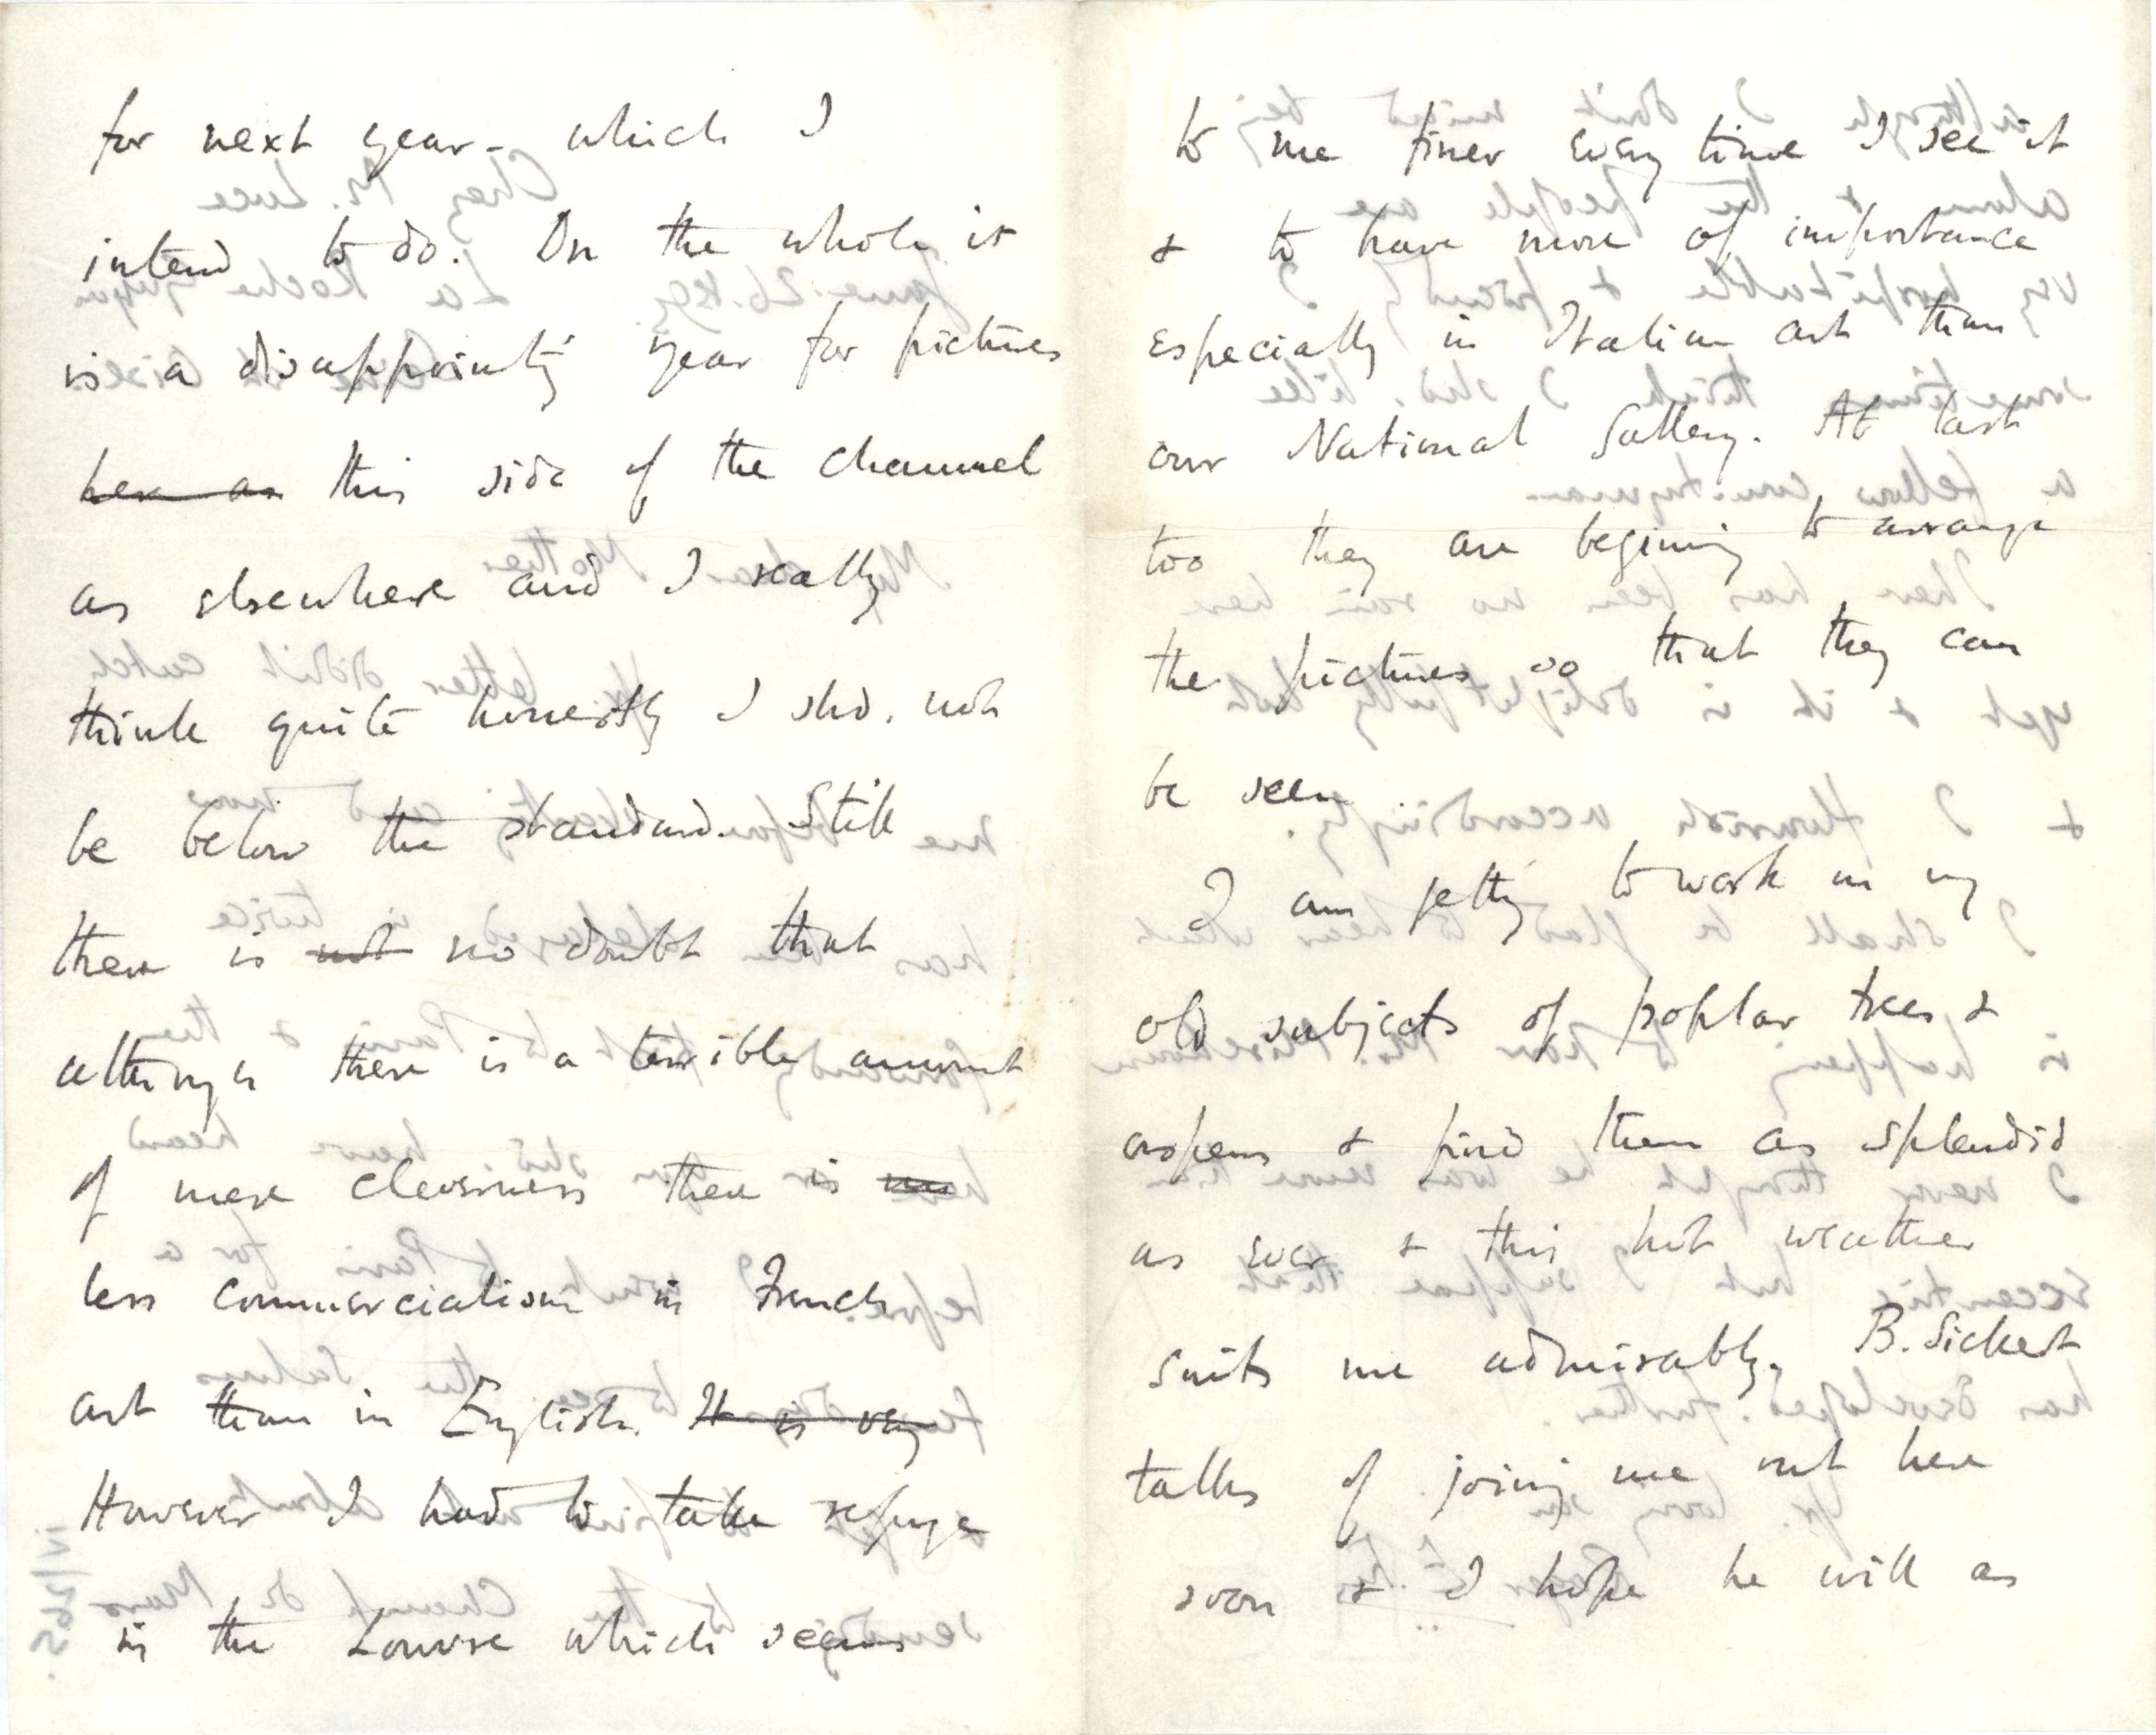 for next year - which I
intend to do. On the whole it
is a disappointg year for pictures
her as this side of the channel
as elsewhere and I really
think quite honestly I shd. not
be below the standard. Still
there is not no doubt that
although there is a terrible amount
of mere cleverness there is
less commercialism in French
art than in English. It is very
However I had to take refuge
in the Louvre which seems
to me finer every time I see it
& to have more of importance
especially in Italian art than
our National Gallery. At last
too they are begining to arrange
the pictures so that they can
be seen.
I am gettg to work on my
old subjects of poplar trees &
aspens & find them as splendid
as ever & this hot weather
suits me admirably. B. Sickert
talks of joing me out here
soon & I hope he will as